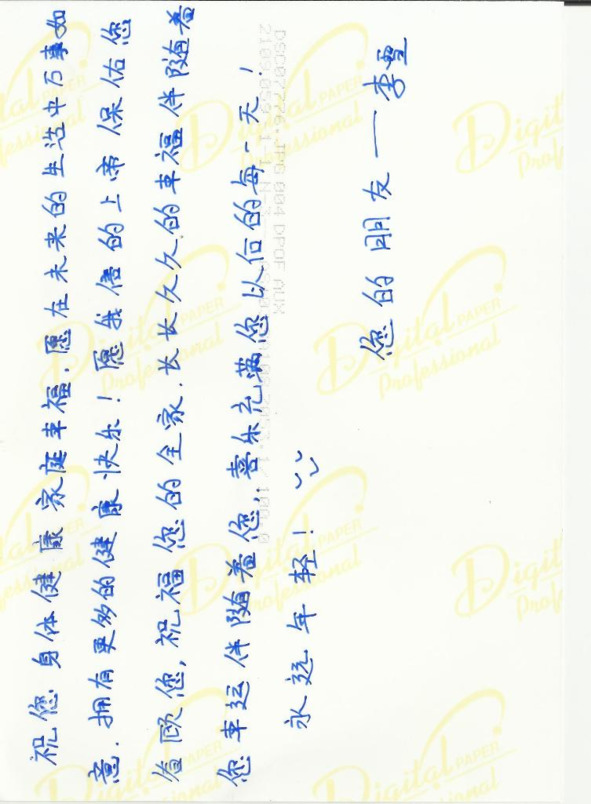 祝您身体健康家庭幸福.愿在未来的生活中万事如
意.拥有更多的健康快乐!愿我信的上帝保佑您
眷顾您,祝福您的全家.长长久久的幸福伴随着
您幸运伴随着您,喜乐充满您以后的每一天!
永远年轻!
您的朋友——李雪
DSC07726.JPG 004 DPOF AUX
Digital PAPER
Professional